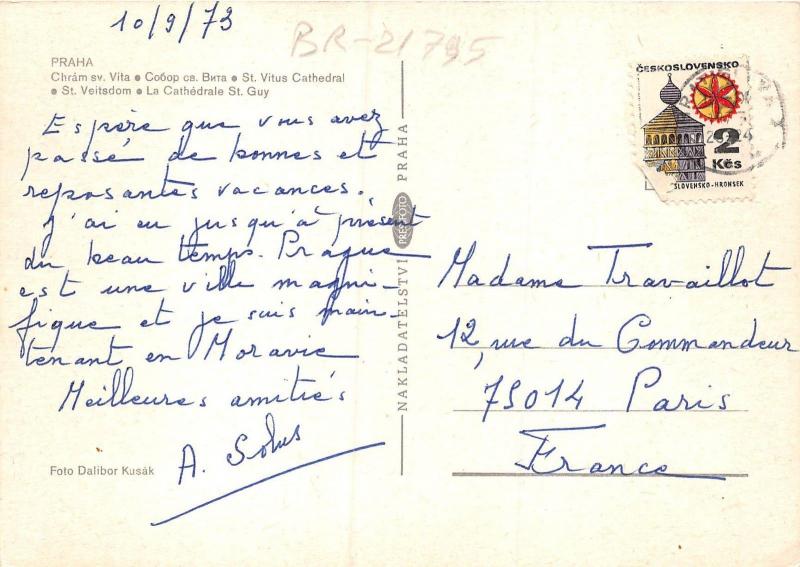 10/9/73
BR-21795
PRAHA
Chrám sv. Víta ● Собор св. Вита ● St. Vitus Cathedral
● St. Veitsdom ● La Cathédrale St. Guy
Espère que vous avez
passé de bonnes et
reposantes vacances.
J'ai eu jusqu'à présent
du beau temps. Prague
est une ville magni-
fique et je suis main-
tenant en Moravie
Meilleures amitiés
A. Solus
Foto Dalibor Kusák
NAKLADATELSTVÍ PRESSFOTO PRAHA
ČESKOSLOVENSKO
2
Kčs
SLOVENSKO-HRONSEK
Madame Travaillot
12, rue du Commandeur
75014 Paris
France